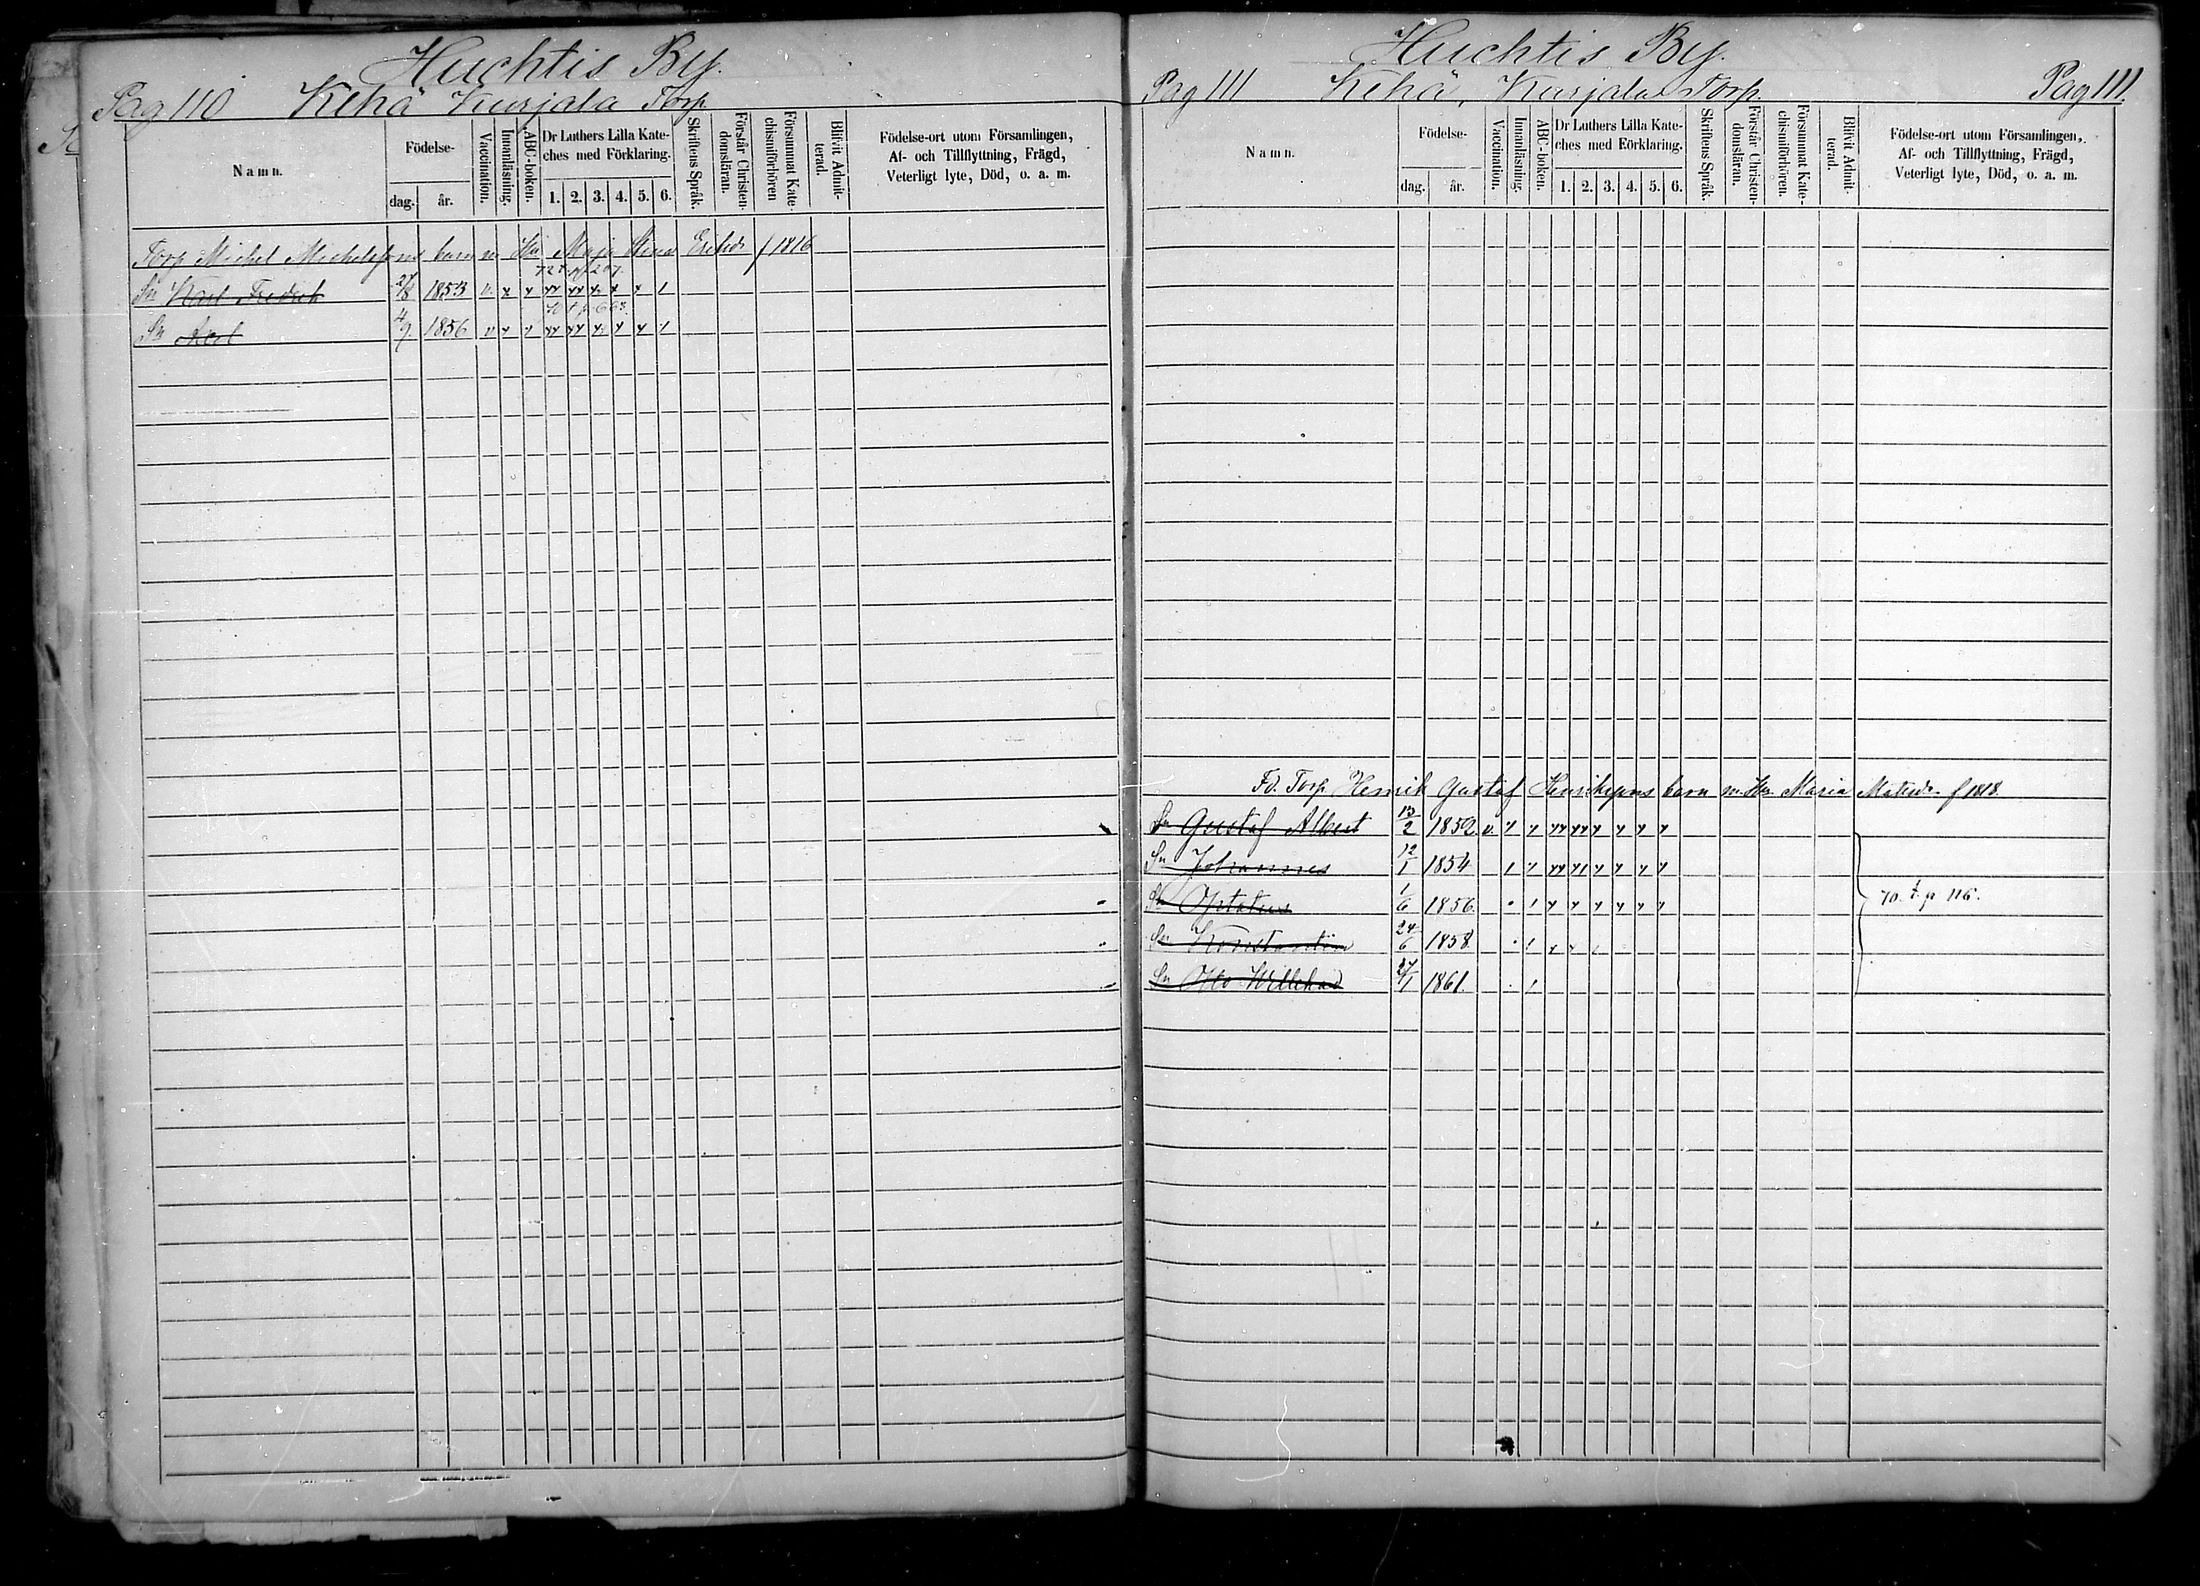 Huchtis By.
Pag 110 Kehä Kurjala Torp.
Namn.
Födelse-
dag. år.
Vaccination.
Innanläsning.
ABC-boken.
Dr Luthers Lilla Kate-
ches med Förklaring.
1. 2. 3. 4. 5. 6.
Skriftens Språk.
Förstår Christen-
domsläran.
Försummat Kate-
chismiförhören
Blifvit Admit-
terad.
Födelse-ort utom Församlingen,
Af- och Tillflyttning, Frägd,
Veterligt lyte, Död, o. a. m.
Torp Michel Michelssons barn m Hu Maja Stina Ericsdr f 1816
72 t. p 207.
Sn Karl Fredrik 27/8 1853 v.
70 t p 663
Sn Axel 4/9. 1856 v
Huchtis By.
Pag 111 Kehä, Kurjala Torp. Pag 111.
Namn.
Födelse-
dag. år.
Vaccination.
Innanläsning.
ABC-boken.
Dr Luthers Lilla Kate-
ches med Eörklaring.
1. 2. 3. 4. 5. 6.
Skriftens Språk.
Förstår Christen-
domsläran.
Försummat Kate-
chismiförhören.
Blifvit Admit-
terad.
Födelse-ort utom Församlingen,
Af- och Tillflyttning, Frägd,
Veterligt lyte, Död, o. a. m.
Fd. Torp Henrik Gustaf Henrikssons barn m Hu. Maria Matsdr. f 1818.
Sn Gustaf Albert 13/2 1852 v.
Sn Johannes 12/1 1854
Sn Optatus 1/6 1856 70. t. p 116.
Sn Konstantin 24/6 1858
Sn Otto Willehad 27/1 1861.